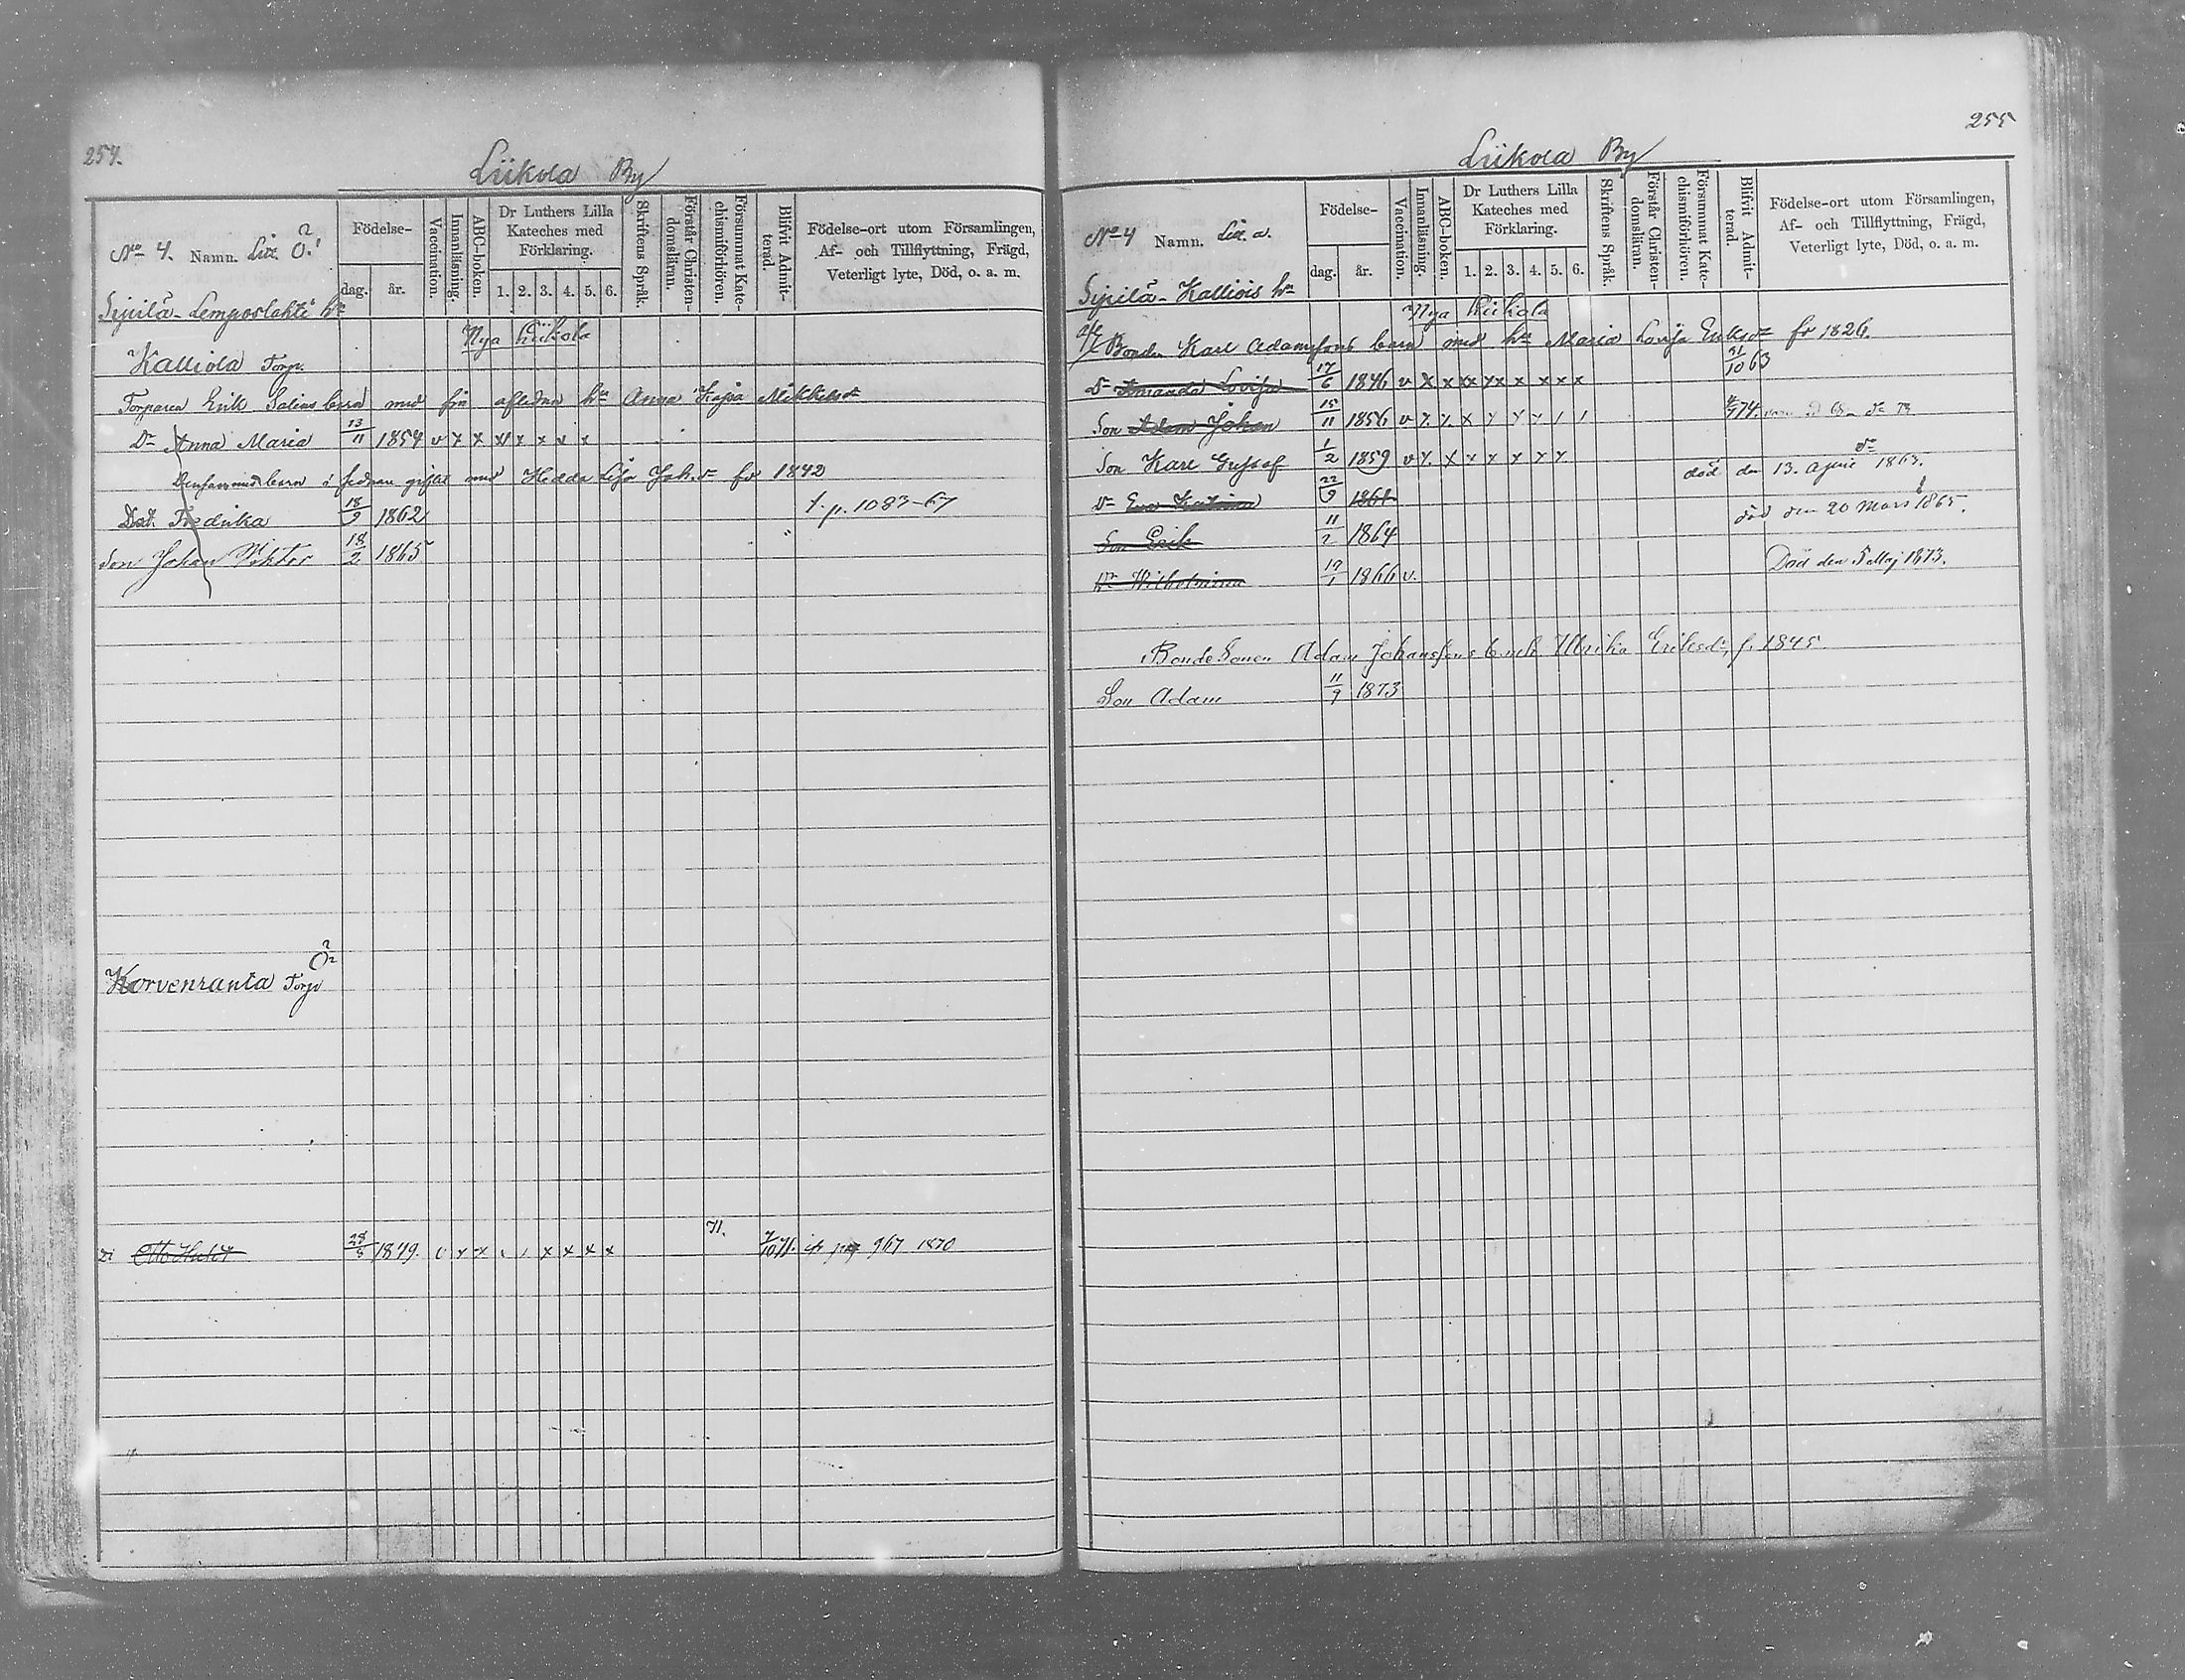 254.
Liikola By
No 4. Namn. Litt. Ö.
Födelse-
dag. år.
Vaccination.
Innanläsning.
ABC-boken.
Dr Luthers Lilla Kateches med Förklaring.
1. 2. 3. 4. 5. 6.
Skriftens Språk.
Förstår Christendomsläran.
Försummat Katechismiförhören.
Blifvit Admitterad.
Födelse-ort utom Församlingen, Af- och Tillflyttning, Frägd, Veterligt lyte, Död, o. a. m.
Sipilä-Lemposlahti hn
Nya Liikola
Kalliola Torp.
Torparen Erik Salins barn med sin aflidna hu Anna Kajsa Mikkelsdr
Dr Anna Maria 13/11 1854 v x x x x x x x
Densammes barn i sednare giftet med Hedda Lisa Joh.dr fö 1842
Dot. Fredrika 18/9 1862 t. p. 1083-67
Son Johan Viktor 18/2 1865 "
Korvenranta Torp
Di Otto 28/5 1849. v x x x x x x 71. 7/10 71. it pag 967 1870
255
Liikola By
No 4 Namn. Litt. a.
Födelse-
dag. år.
Vaccination.
Innanläsning.
ABC-boken.
Dr Luthers Lilla Kateches med Förklaring.
1. 2. 3. 4. 5. 6.
Skriftens Språk.
Förstår Christendomsläran.
Försummat Katechismiförhören.
Blifvit Admitterad.
Födelse-ort utom Församlingen, Af- och Tillflyttning, Frägd, Veterligt lyte, Död, o. a. m.
Sipilä-Kalliois hn
Nya Liikola
Bonden Karl Adamssons barn med hu Maria Lovisa Eriksdr fö 1826.
Dr Amanda Lovisa 17/6 1846 v x x xx xx x x x x 21/10 63
Son Adam Johan 15/11 1856 v x x x x x x / / 74.
Son Karl Gustaf 1/2 1859 v x x x x x x x
Dr Eva Katrina 22/9 1861 död den 13. April 1863.
Son Erik 11/2 1864 död den 20 Mars 1865.
Dr Wilhelmina 19/1 1866 v. Död den 5 Maj 1873.
BondeSonen Adam Johanssons b. m. h. Ulrika Eriksdr, f. 1845
Son Adam 11/9 1873